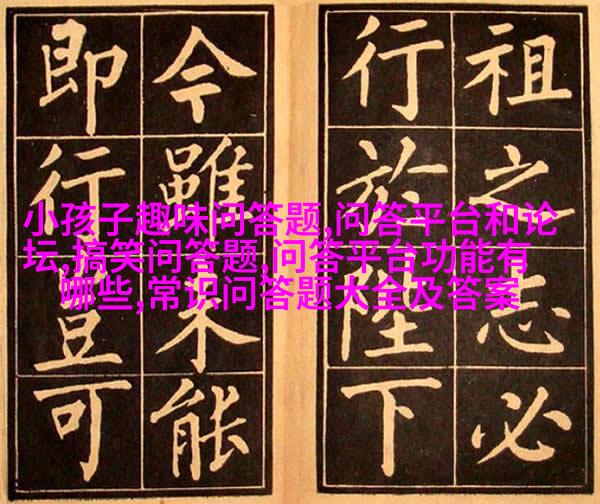 祖之志必
行於陛下
今雖未能
即行豈可
小孩子趣味问答题,问答平台和论
坛,搞笑问答题,问答平台功能有
哪些,常识问答题大全及答案